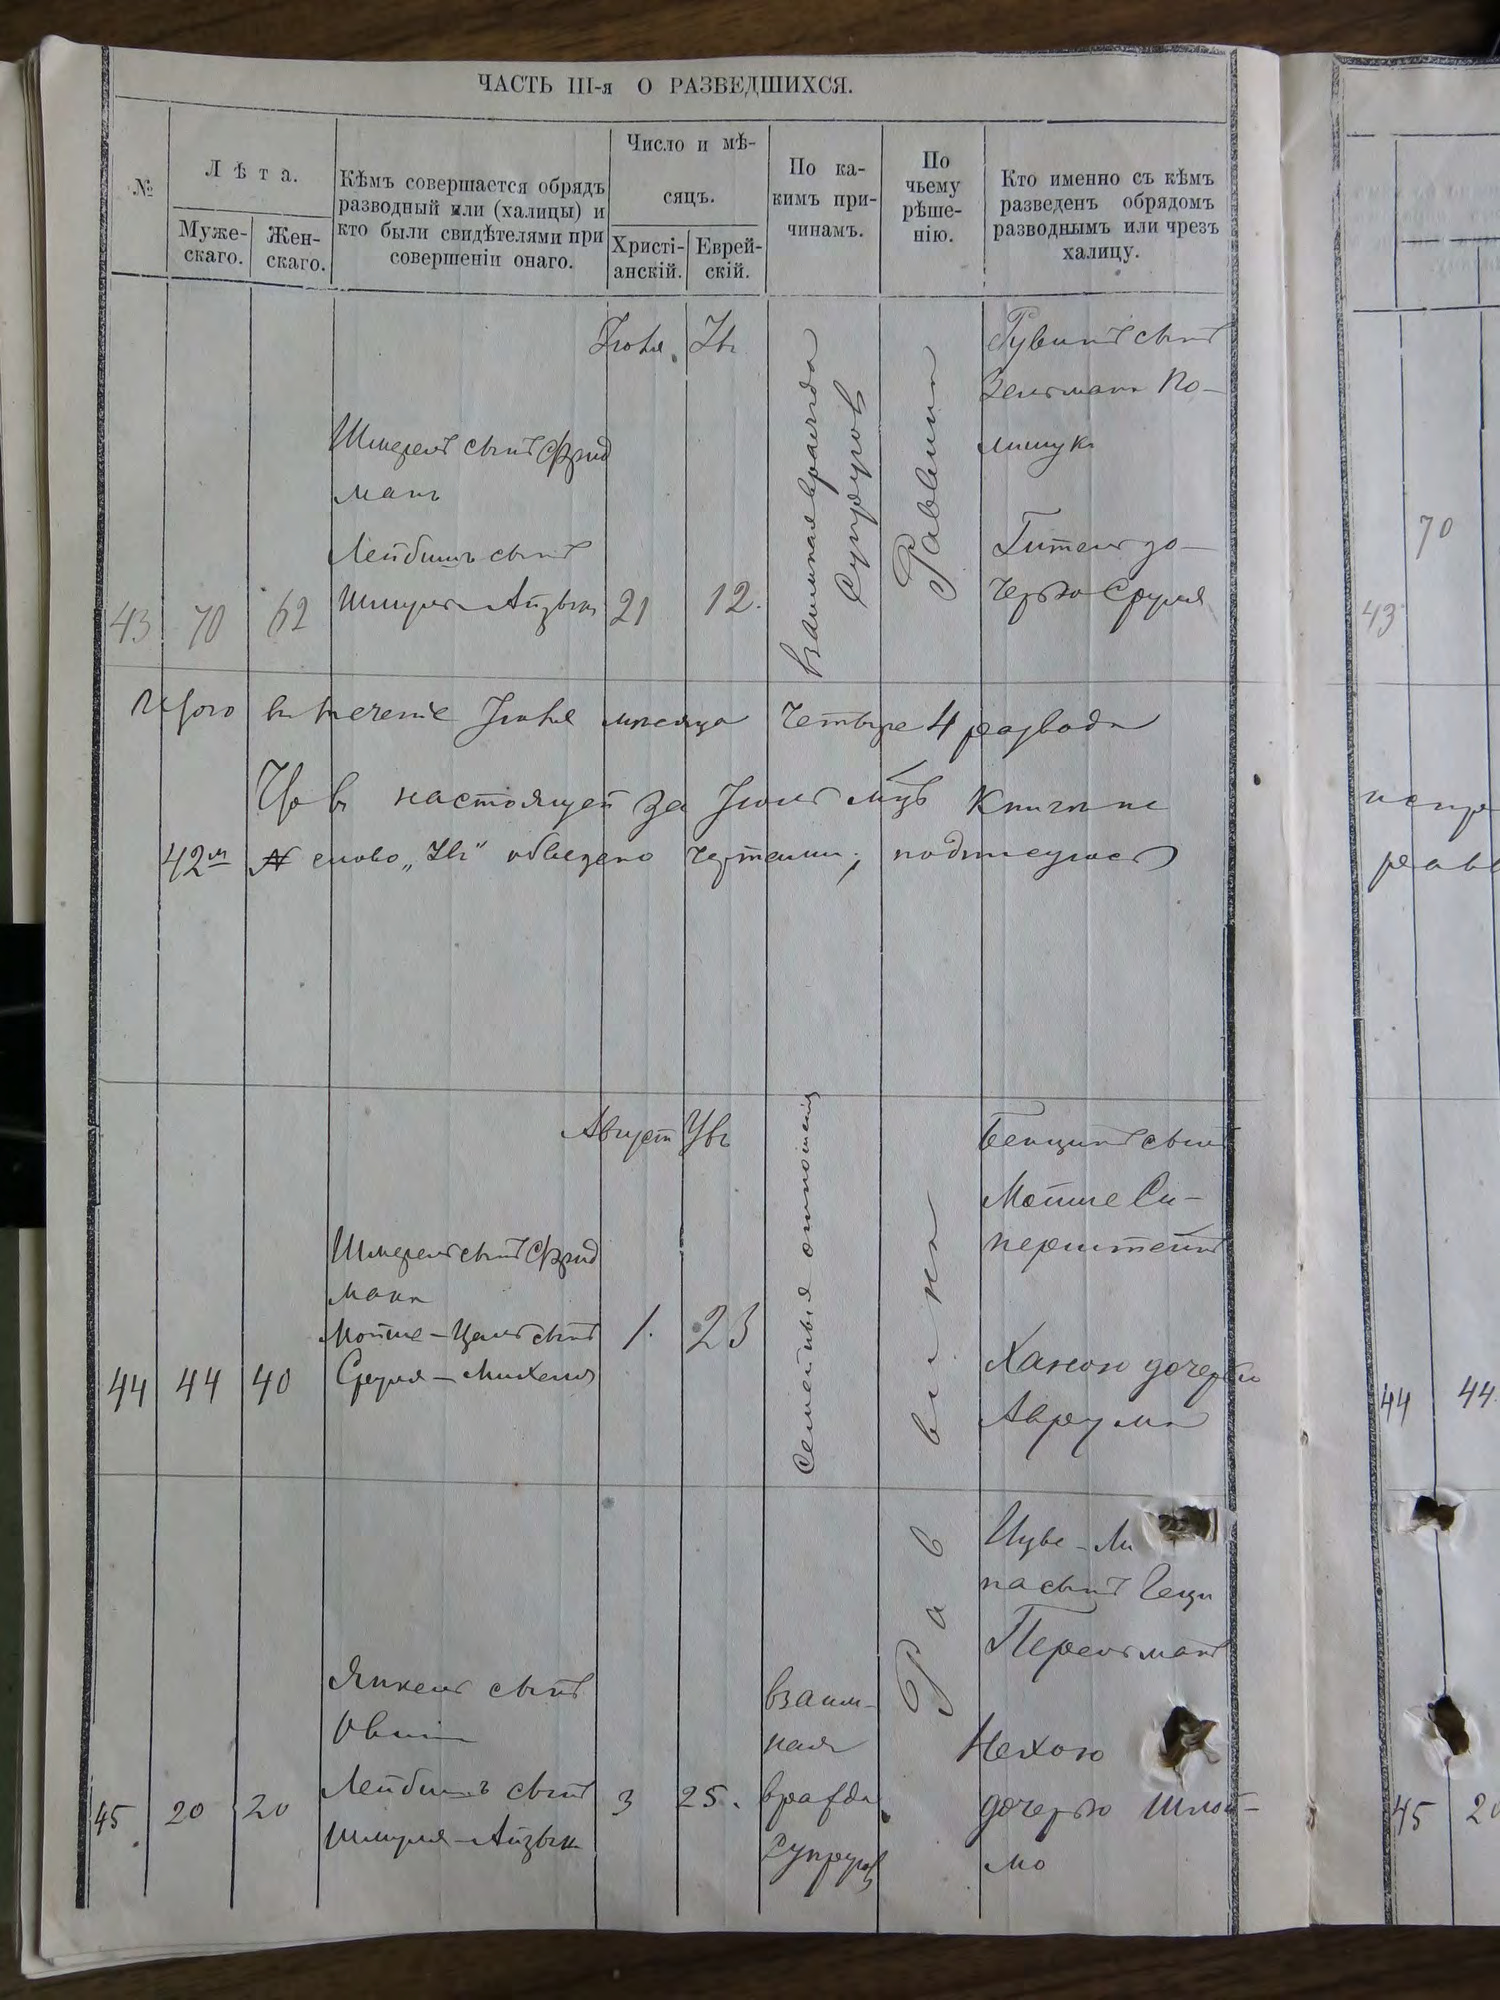 ЧАСТЬ III-я О РАЗВЕДШИХСЯ.
№
Лѣта.
Муже-
скаго.
Жен-
скаго.
Кѣмъ совершается обрядъ
разводный или (халицы) и
кто были свидѣтелями при
совершеніи онаго.
Число и мѣ-
сяцъ.
Христі-
анскій.
Еврей-
скій.
По ка-
кимъ при-
чинамъ.
По
чьему
рѣше-
нію.
Кто именно съ кѣмъ
разведенъ обрядомъ
разводнымъ или чрезъ
халицу.
Іюля
43 70 62
Шмерель сынъ Фрид
манъ
Лейбишъ сынъ
Шмуля-Айзыка
21 12.
Взаимная вражда
супруговъ
Раввина
Рувинъ сынъ
Зельмана По-
лищукъ
Гитель до-
черью Сруля
Итого въ теченіе Іюля мѣсяца четыре 4 развода
Что въ настоящей за Іюль мцъ книги на
42м № слово обведено чертами, подписуюсь
Август
44 44 40
Шмерель сынъ Фрид
манъ
Мойше-Цаль сынъ
Сруля-Михеля
1. 23
Семейныя отношенія
Раввина
Бенционъ сынъ
Мойше Си-
перштейнъ
Ханою дочерью
Аврума
45 20 20
Янкель сынъ
Овши
Лейбишъ сынъ
Шмуля-Айзыка
3 25.
взаим-
ная
вражда
супругов
па сынъ
Перельманъ
Нехою
дочерью Шлой-
мо
70
43
44 44
45